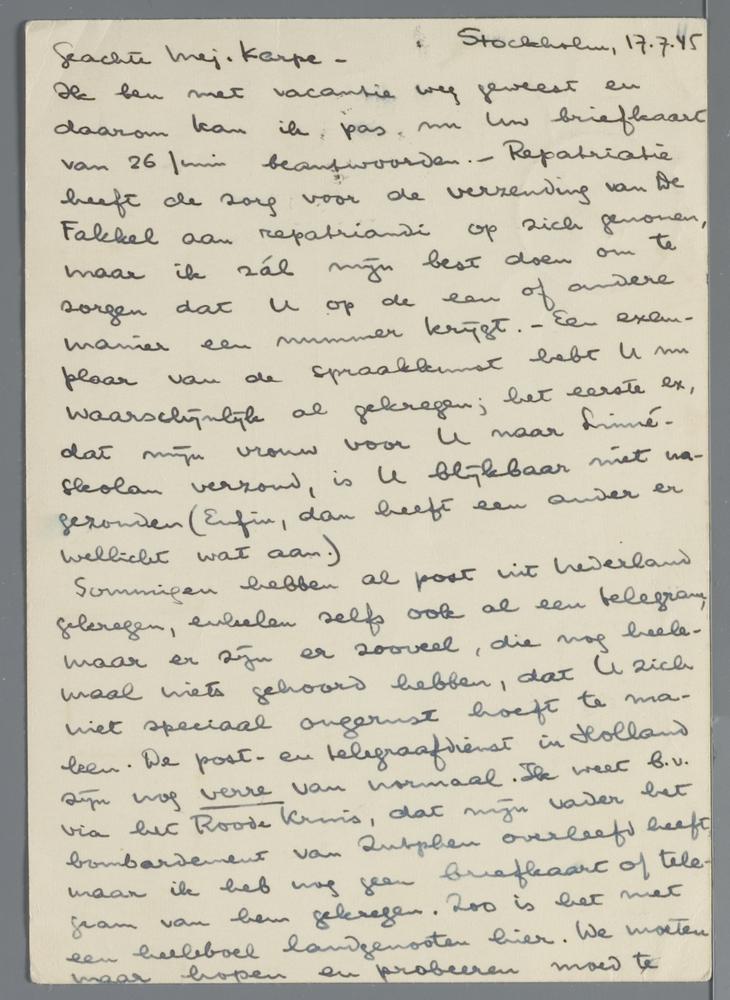 Stockholm, 17.7.45
Geachte Mej. Karpe -
Ik ben met vacantie weg geweest en
daarom kan ik pas nu Uw briefkaart
van 26 juni beantwoorden. - Repatriatie
heeft de zorg voor de verzending van De
Fakkel aan repatriandi op zich genomen,
maar ik zál mijn best doen om te
zorgen dat U op de een of andere
manier een nummer krijgt. - Een exem-
plaar van de spraakkunst hebt U nu
waarschijnlijk al gekregen; het eerste ex,
dat mijn vrouw voor U naar Linné-
skolan verzond, is U blijkbaar niet na-
gezonden (Enfin, dan heeft een ander er
wellicht wat aan.)
Sommigen hebben al post uit Nederland
gekregen, enkelen zelfs ook al een telegram,
maar er zijn er zooveel, die nog heele-
maal niets gehoord hebben, dat U zich
niet speciaal ongerust hoeft te ma-
ken. De post- en telegraafdienst in Holland
zijn nog verre van normaal. Ik weet b.v.
via het Roode Kruis, dat mijn vader het
bombardement van Zutphen overleefd heeft,
maar ik heb nog geen briefkaart of tele-
gram van hem gekregen. Zoo is het met
een heeleboel landgenooten hier. We moeten
maar hopen en probeeren moed te